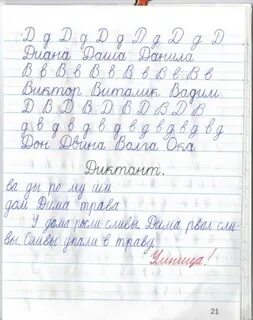 Д д Д д Д д Д д Д д Д
Диана Даша Данила
В в В в В в В в В в В в
Виктор Виталик Вадим.
Д В Д В Д В Д В Д В
д в д в д в д в д в д в д
Дон Двина Волга Ока
Диктант.
ва ды ро му ши
дом Дима трава
У дома росли сливы. Дима рвал сли-
вы. Сливы упали в траву.
Умница!
21